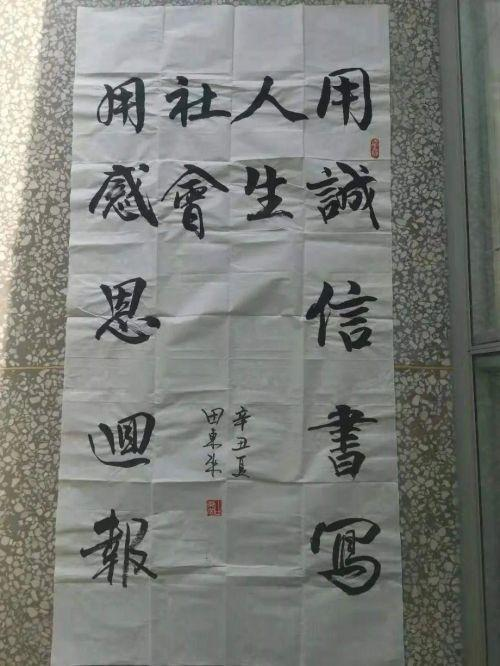 用誠信書寫
人生
用感恩迴報
社會
辛丑夏
田東